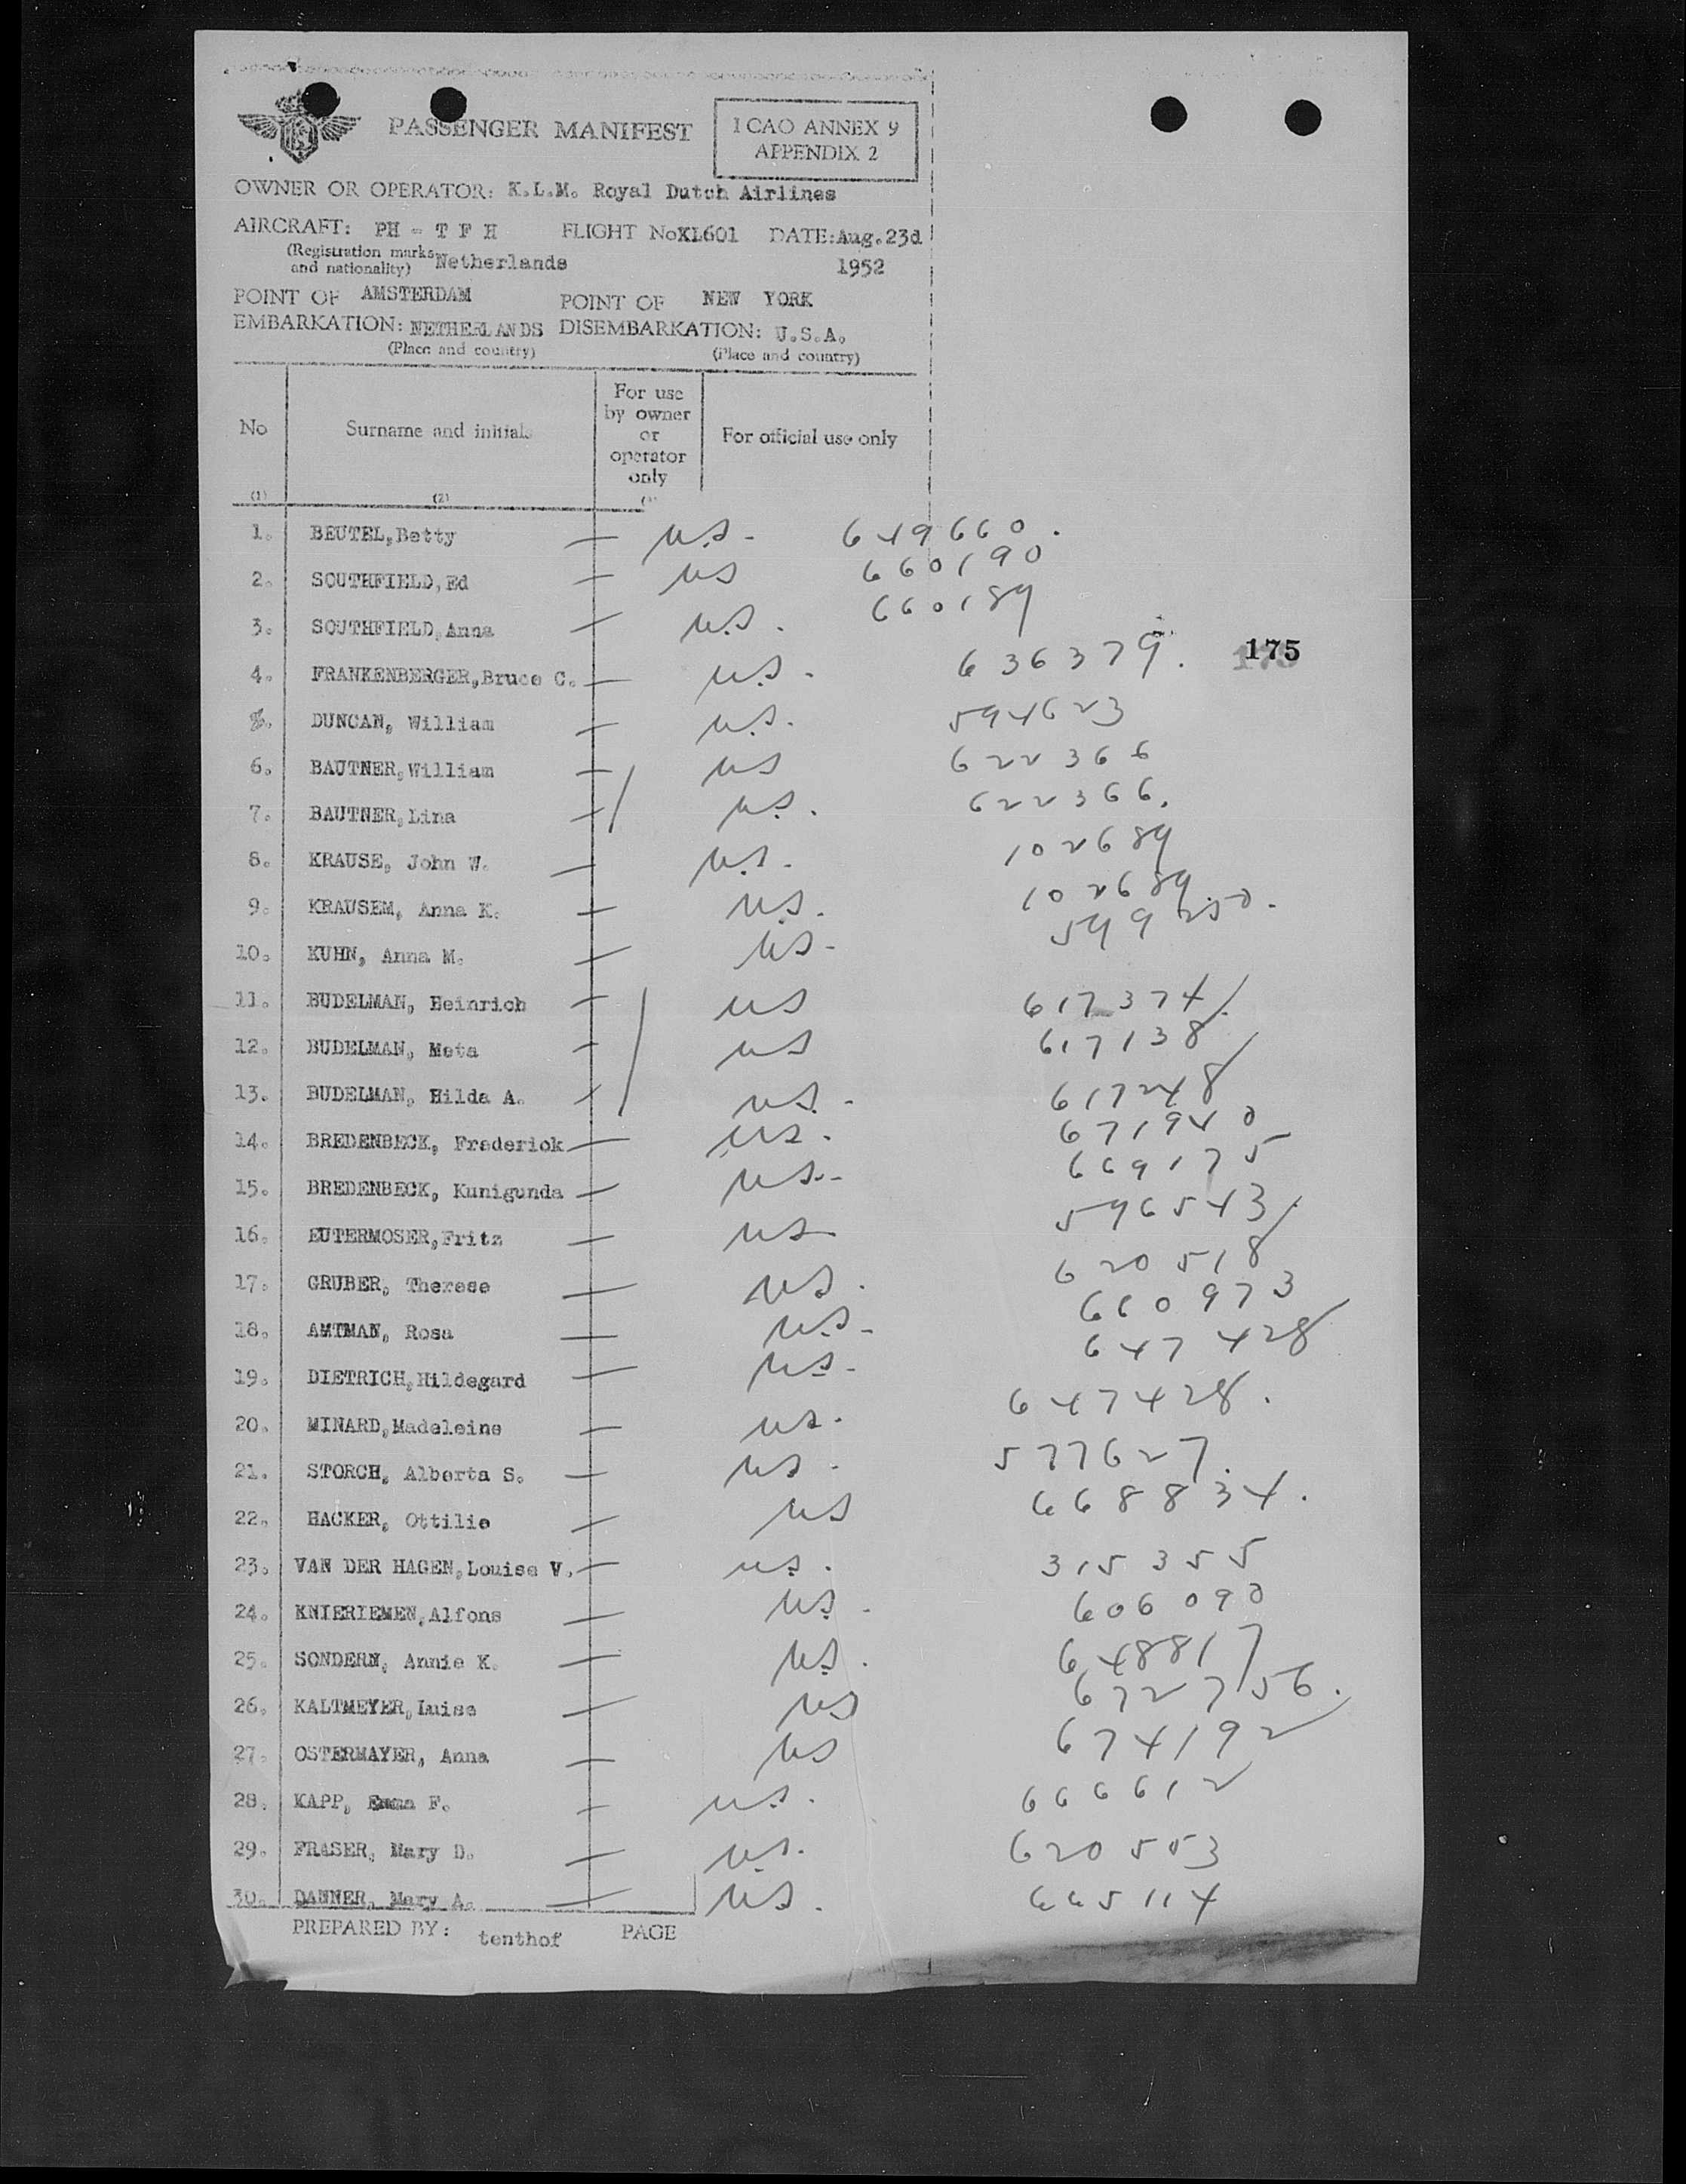 PASSENGER MANIFEST
I CAO ANNEX 9
APPENDIX 2
OWNER OR OPERATOR: K.L.M. Royal Dutch Airlines
AIRCRAFT: PH - T F H FLIGHT No KL601 DATE: Aug. 23d
(Registration marks and nationality) Netherlands 1952
POINT OF EMBARKATION: AMSTERDAM NETHERLANDS
(Place and country)
POINT OF DISEMBARKATION: NEW YORK U.S.A.
(Place and country)
No
Surname and initials
For use by owner or operator only
For official use only
(1) (2)
1. BEUTEL, Betty — U.S. - 649660.
2. SOUTHFIELD, Ed — US 660190
3. SOUTHFIELD, Anna — U.S. 660189
175
4. FRANKENBERGER, Bruce C. — U.S. - 636379.
5. DUNCAN, William — U.S. 594623
6. BAUTNER, William — US 622366
7. BAUTNER, Lina — U.S. 622366.
8. KRAUSE, John W. — U.S. 102689
9. KRAUSEM, Anna K. — U.S. 102689
10. KUHN, Anna M. — US - 599250.
11. BUDELMAN, Heinrich — US 617374
12. BUDELMAN, Meta — US 617138
13. BUDELMAN, Hilda A. — U.S. - 617248
14. BREDENBECK, Frederick — US. 671940
15. BREDENBECK, Kunigunda — US. - 669175
16. EUTERMOSER, Fritz — US 596543
17. GRUBER, Therese — US. 620518
18. AMTMAN, Rosa — U.S. - 660973
19. DIETRICH, Hildegard — U.S. - 647428
20. MINARD, Madeleine — US. 647428.
21. STORCH, Alberta S. — US. 577627.
22. HACKER, Ottilie — US 668834.
23. VAN DER HAGEN, Louise V. — U.S. 315355
24. KNIERIEMEN, Alfons — U.S. 606090
25. SONDERN, Annie K. — U.S. 648817
26. KALTMEYER, Luise — US 672756.
27. OSTERMAYER, Anna — US 674192
28. KAPP, Emma F. — U.S. 666612
29. FRASER, Mary D. — U.S. 620553
30. DANNER, Mary A. — U.S. 665114
PREPARED BY: tenthof PAGE